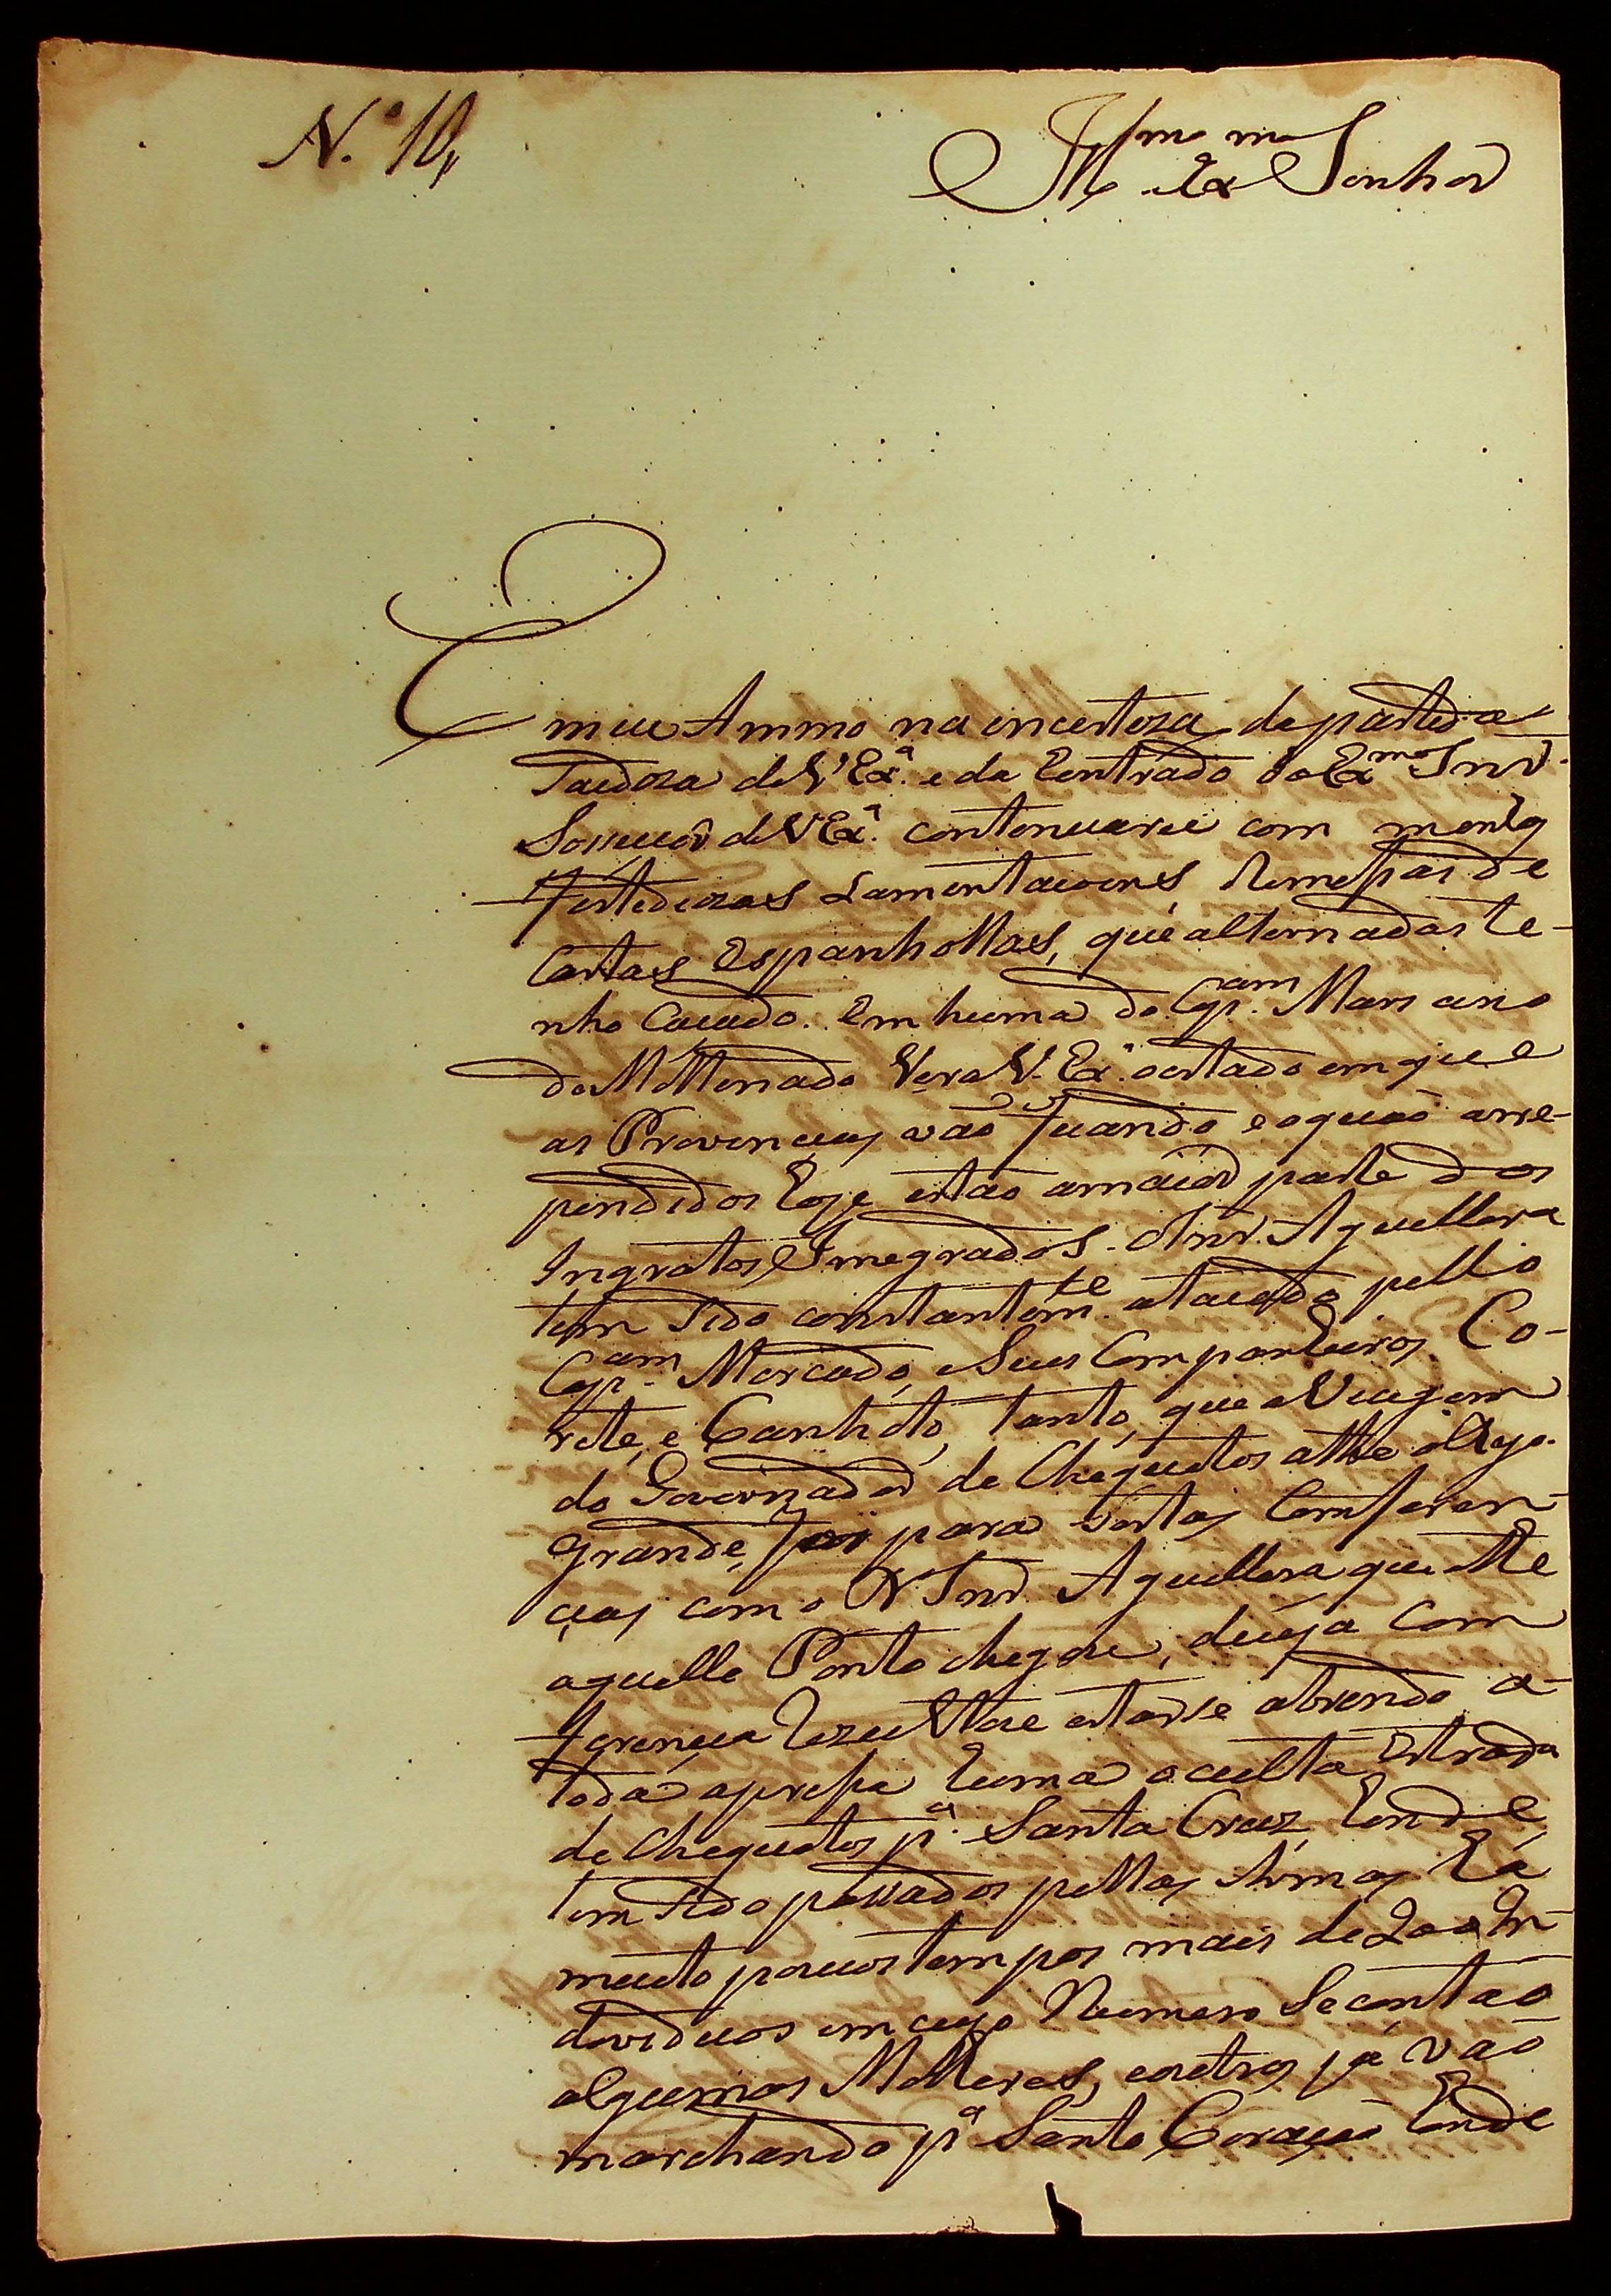 N.º 10,,
Ill.mo Ex.mo Senhor
Em meu Ammo na incerteza da partida
Saudoza de V.Exª. e da Entrada do Ex.mo Snr.
Sossueor de V.Exª. contenuarei com
fastediozas Lamentacoens, Remessas de
Cartas Espanhollas, que alternadas te-
nho Cauado. Em huma do Cap.am Marianno
do Mollenado Vera V. Exª. oestado em que
as Provenças vão ficando e oquão arre-
pendidos Hoje estão amaior parte dos
Ingratos Emegrados. O Snr. Aguillera
tem sido constantem.te atacado pello
Cap.am Mercado, e Seus Companheiros, Co-
rete, e Canhoto, tanto, que a Viagem
do Governador de Chequetos athe o Rego
grande, foi para Sertas Comferen-
cias com o Snr. Aguillera que athe
aquelle Ponto chegou, de cuja Com
ferencia Rezultou estarse abrindo a
toda apressa Huma oculta Estrada
de Chequetos p.ª Santa Cruz, Honde
tem sido passados pellas Armas Ha
muito poucos tempos mais de 200 In-
deviduos em cujo Numero Secontão
algumas Molheres, eoutros ja vão
marchando p.ª Santo Coração Honde